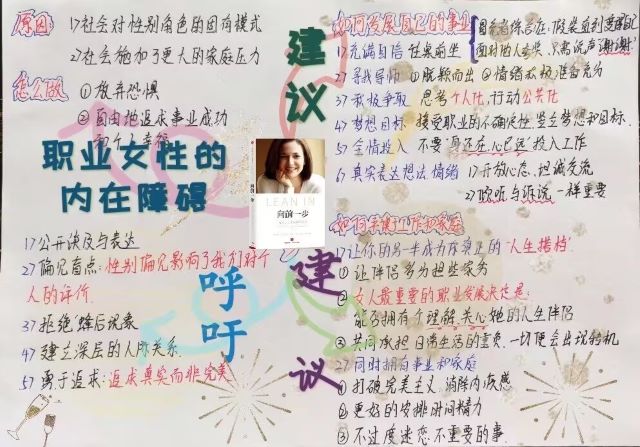 原因
1)社会对性别角色的固有模式
2)社会施加了更大的家庭压力
怎么做
① 放弃恐惧
② 自由地追求事业成功
和个人幸福
职业女性的
内在障碍
1)公开谈及与表达
2)偏见盲点:性别偏见影响了我们对个
人的评价.
3)拒绝"蜂后现象
4)建立深层的人脉关系.
5)勇于追求:追求真实而非完美
呼吁
LEAN IN
向前一步
建议
如何发展自己的事业
1)充满自信 往桌前坐
面对他人夸奖,只需说声"谢谢"
2)寻找导师 ①脱颖而出 ②情绪积极准备充分
3)积极争取 思考个人化,行动公共化
4)梦想目标 接受职业的不确定性,竖立梦想和目标.
5)全情投入 不要"身还在,心已远"投入工作
6)真实表达想法 情绪
1)开放心态,坦诚交流
2)倾听与诉说一样重要
建议
如何平衡工作和家庭
1)让你的另一半成为你真正的"人生搭档"
① 让伴侣多多担些家务
② 女人最重要的职业发展决定是:
能否拥有个理解、关心她的人生伴侣
③ 共同承担日常生活的重负,一切便会出现转机
2)同时拥有事业和家庭
① 打破完美主义,消除内疚感
② 更好的安排时间精力
③ 不过度迷恋不重要的事